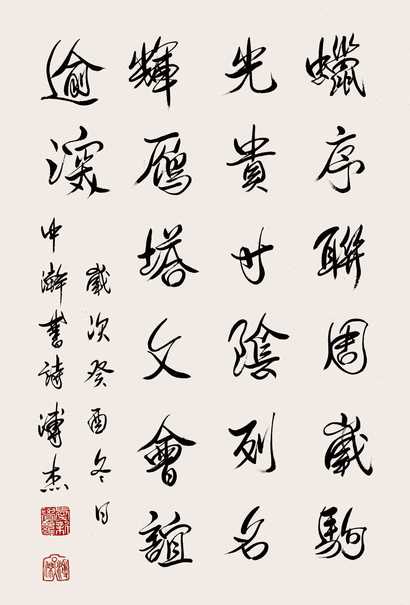 蠟序聯周歲駒
光貴寸陰列名
輝鴈塔文會誼
逾深
歲次癸酉冬日
中瀚書詩溥杰